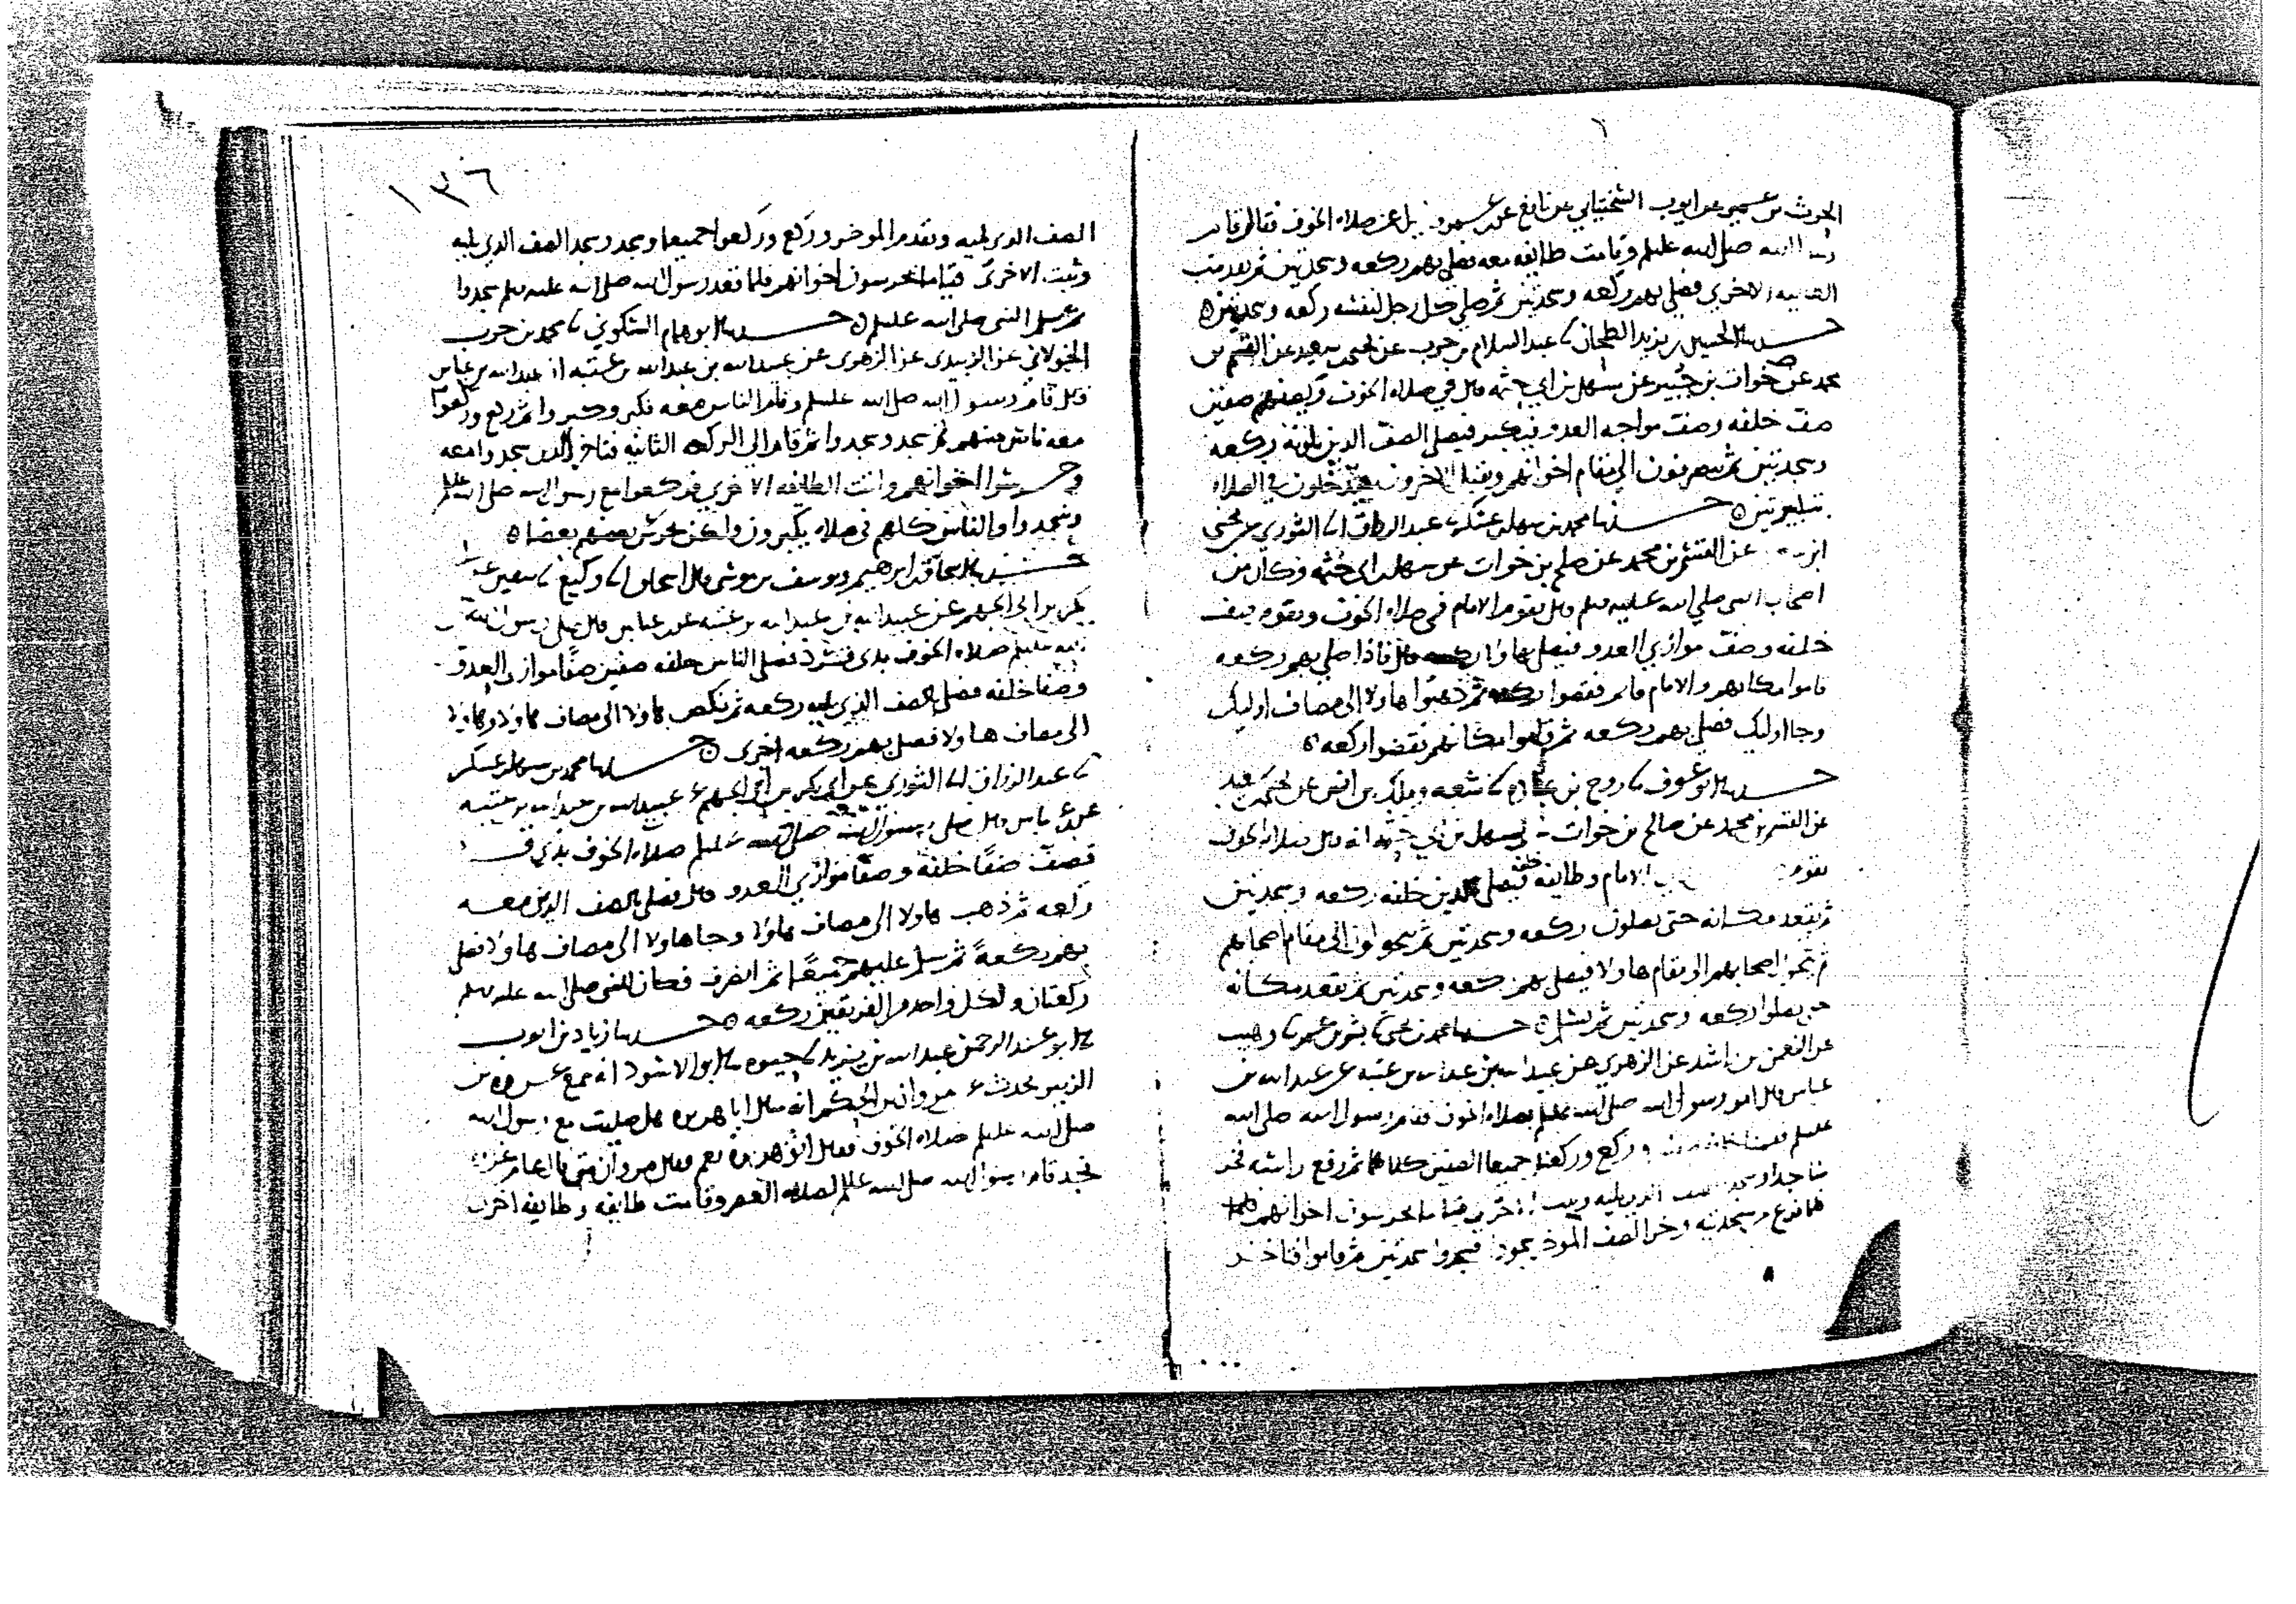 الحرث بن عمير عن ايوب السختياني عن نافع عن صلاه الخوف فقال قام
صلى الله عليه وقامت طايفه معه فصلى بهم ركعه وسجدتين ثم
الاخرى فصلى بهم ركعه وسجدتين ثم صلى كل رجل لنفسه ركعه وسجدتين ه
حدثنا الحسين بن يزيد الطحان عبد السلام بن حرب عن يحيى بن سعيد عن القسم بن
محمد عن خوات بن جبير عن سهل بن ابي حثمه قال في صلاه الخوف صفين
صف خلفه وصف مواجه العدو فيكبر فيصلي الصف الذين يلونه ركعه
وسجدتين ثم ينصرفون الى مقام اخوانهم ويقبل الاخرون يدخلون في الصلاه
بتكبيرتين ه حدثنا محمد بن سهل بن عسكر عبد الرزاق الثوري عن يحيى
عن القسم بن محمد عن صلح بن خوات عن سهل بن ابي حثمه وكان من
اصحاب النبي صلى الله عليه وسلم قال يقوم الامام في صلاه الخوف ويقوم صف
خلفه وصف موازي العدو فيصلي بهاولا ركعه قال فاذا صلى بهم ركعه
قاموا مكانهم والامام قايم فقضوا ركعه ثم ذهبوا هاولا الى مصاف اوليك
وجا اوليك فصلى بهم ركعه ثم قاموا مكانهم فقضوا ركعه ه
حدثنا روح بن شعبه وملك بن انس عن يحيى بن سعيد
عن القسم بن محمد عن صالح بن خوات سهل بن ابي حثمه انه قال صلاه الخوف
يقوم الامام وطايفه خلفه فيصلي بالذين خلفه ركعه وسجدتين
ثم يقعد مكانه حتى يصلون ركعه وسجدتين ثم يتحولون الى مقام اصحابهم
ثم يتحول اصحابهم الى مقام هاولا فيصلي بهم ركعه وسجدتين ثم يقعد مكانه
حتى يصلوا ركعه وسجدتين ثم يسلم ه حدثنا محمد بن يحيى وهيب
عن النعمن بن راشد عن الزهري عن عبيد الله بن عبد الله بن عتبه عن عبد الله بن
عباس قال امر رسول الله صلى الله عليه وسلم بصلاه الخوف فقام رسول الله صلى الله
عليه وركع وركعوا جميعا الصفين كلاهما ثم رفع راسه فخر
ساجدا وسجد الذين يليه وثبت الاخرى قياما يحرسون اخوانهم فلما
فرغ من سجدته وخر الصف الموخر فسجدوا سجدتين ثم قاموا فتاخر
١٣٦
الصف الذي يليه وتقدم الموخر وركع وركعوا جميعا وسجد وسجد الصف الذي يليه
وثبت الاخرى قياما يحرسون اخوانهم فلما قعد رسول الله صلى الله عليه وسلم سجدوا
ثم سلم النبي صلى الله عليه وسلم ه حدثنا ابو همام السكوني محمد بن حرب
الخولاني عن الزبيدي عن الزهري عن عبيد الله بن عبد الله بن عتبه ان عبد الله بن عباس
قال قام رسول الله صلى الله عليه وسلم وقام الناس معه فكبر وكبروا ثم ركع وركعوا
معه ناس منهم ثم سجد وسجدوا ثم قام الى الركعه الثانيه فتاخر الذين سجدوا معه
وحرسوا اخوانهم واتت الطايفه الاخرى فركعوا مع رسول الله صلى الله عليه وسلم
وسجدوا والناس كلهم في صلاه يكبرون ولكن يحرس بعضهم بعضا ه
حدثنا اسحاق بن ابرهيم ويوسف بن موسى قال اسحاق وكيع سفين عن
بكر بن ابي الجهم عن عبيد الله بن عبد الله بن عتبه عن ابن عباس قال صلى رسول الله
صلاه الخوف بذي قرد فصلى الناس خلفه صفين صفا موازي العدو
وصفا خلفه فصلى بالصف الذي يليه ركعه ثم نكص هاولا الى مصاف هاولا وهاولا
الى مصاف هاولا فصلى بهم ركعه اخرى ه حدثنا محمد بن سهل بن عسكر
عبد الرزاق الثوري عن ابي بكر بن ابي الجهم عن عبيد الله بن عبد الله بن عتبه
عن ابن عباس قال صلى رسول الله صلى الله عليه وسلم صلاه الخوف بذي
فصف صفا خلفه وصفا موازي العدو قال فصلى بالصف الذين معه
ركعه ثم ذهب هاولا الى مصاف هاولا وجا هاولا الى مصاف هاولا فصلى
بهم ركعة ثم سلم عليهم جميعا ثم انصرف فكان للنبي صلى الله عليه وسلم
ركعتان ولكل واحد من الفريقين ركعه ه حدثنا زياد بن ايوب
ابو عبد الرحمن عبد الله بن يزيد حيوه ابو الاسود انه سمع عروه بن
الزبير يحدث عن مروان بن الحكم انه سال ابا هريره هل صليت مع رسول الله
صلى الله عليه وسلم صلاه الخوف فقال ابو هريره نعم فقال مروان متى قال عام غزوه
نجد قام رسول الله صلى الله عليه وسلم لصلاه العصر وقامت طايفه وطايفه اخرى